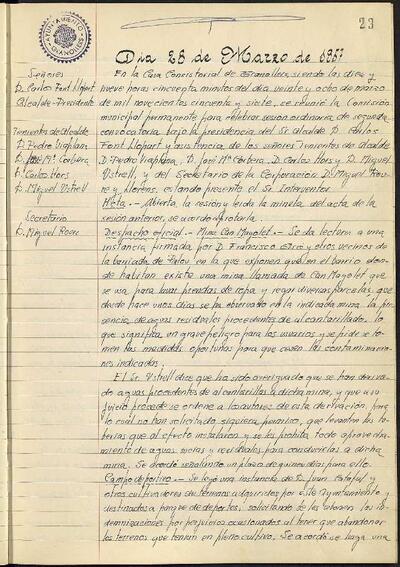 23
AYUNTAMIENTO
GRANOLLERS
Dia 28 de Marzo de 1957
Señores
D. Carlos Font Llopart
Alcalde-Presidente
Tenientes de Alcalde
D. Pedro Viaplana
D. José Mª Corbera
D. Carlos Hors
D. Miguel Ustrell
Secretario
D. Miguel Roura
En la Casa Consistorial de Granollers, siendo las diez y
nueve horas cincuenta minutos del dia veinte y ocho de marzo
de mil novecientos cincuenta y siete, se reunió la Comisión
municipal permanente para celebrar sesión ordinaria de segunda
convocatoria bajo la presidencia del Sr. Alcalde D. Carlos
Font Llopart y asistencia de los señores Tenientes de Alcalde
D. Pedro Viaplana, D. José Mª Corbera, D. Carlos Hors y D. Miguel
Ustrell, y del Secretario de la Corporación D. Miguel Rou-
re y Llorens, estando presente el Sr. Interventor.
Acta.- Abierta la sesión y leida la minuta del acta de la
sesión anterior, se acordó aprobarla.
Despacho oficial.- Mina Can Mayolet.- Se da lectura a una
instancia firmada por D. Francisco y otros vecinos de
la barriada de Palou en la que exponen que en el barrio don-
de habitan existe una mina llamada de Can Mayolet que
se usa para lavar prendas de ropa y regar diversas parcelas, que
desde hace unos dias se ha observado en la indicada mina la pre-
sencia de aguas residuales procedentes de alcantarillado, lo
que significa un grave peligro para los usuarios y se pide se to-
men las medidas oportunas para que cesen las contaminacio-
nes indicadas.
El Sr. Ustrell dice que ha sido averiguado que se han deriva-
do aguas procedentes de alcantarillas a dicha mina, y que a su
juicio procede se ordene a los autores de esta derivación, para
lo cual no han solicitado siquiera permiso, que levanten las tu-
berias que al efecto instalaron y se les prohiba todo aprovecha-
miento de aguas sucias y residuales para conducirlas a dicha
mina. Se acordó señalando un plazo de quince dias para ello.
Campo deportivo.- Se leyó una instancia de D. Juan Estafal y
otros cultivadores de terrenos adquiridos por este Ayuntamiento y
destinados a parque de deportes, solicitando se les abonen las in-
demnizaciones por perjuicios ocasionados al tener que abandonar
los terrenos que tenian en pleno cultivo. Se acordó se haga una